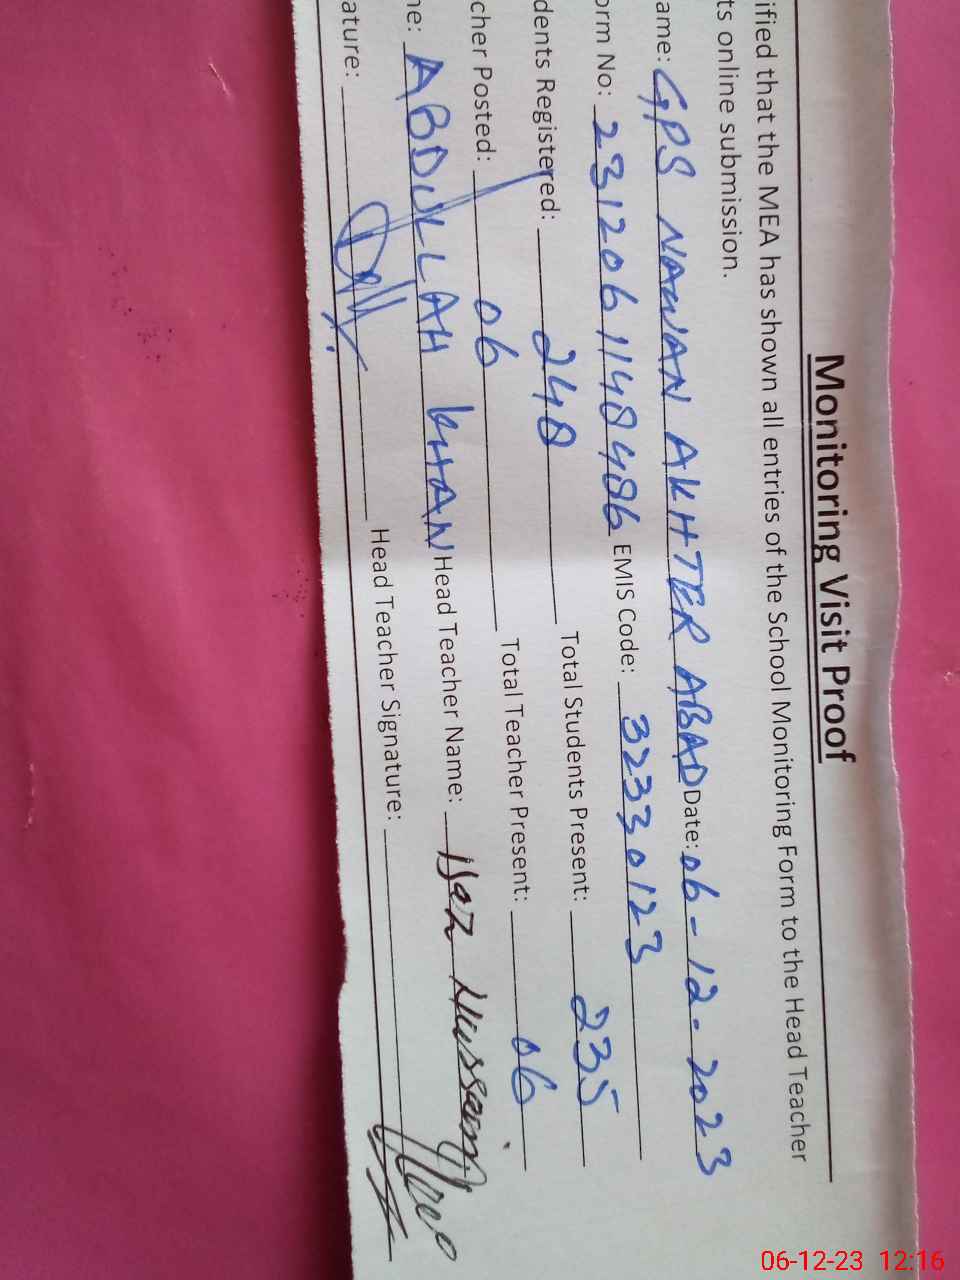 Monitoring Visit Proof
ified that the MEA has shown all entries of the School Monitoring Form to the Head Teacher
ts online submission.
ame: GPS NAWAN AKHTER ABAD Date: 06-12-2023
orm No: 2312061148486 EMIS Code: 32330123
dents Registered: 248 Total Students Present: 235
cher Posted: 06 Total Teacher Present: 06
ne: ABDULLAH KHAN Head Teacher Name: Hussain
ature: Head Teacher Signature:
06-12-23 12:16